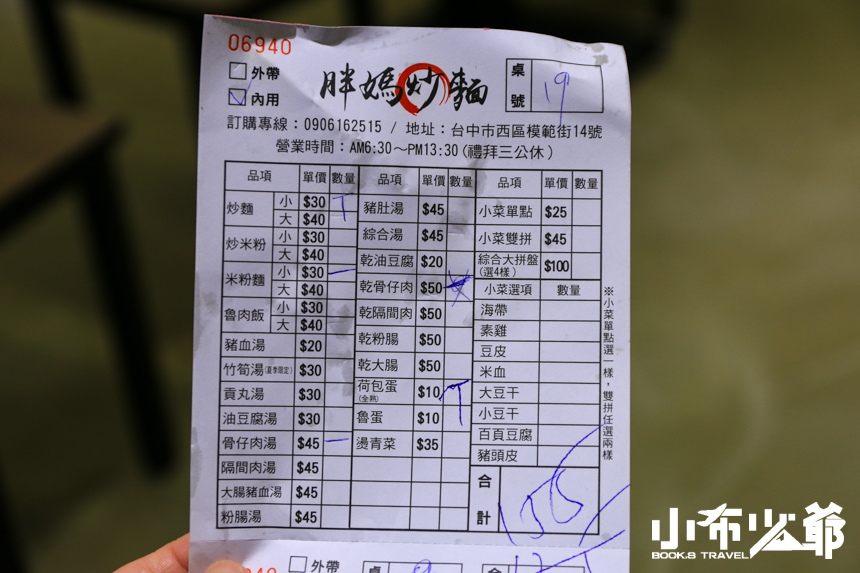 06940
外帶
內用
胖媽炒麵
桌號 19
訂購專線：0906162515 / 地址：台中市西區模範街14號
營業時間：AM6:30～PM13:30(禮拜三公休)
品項 單價 數量 品項 單價 數量 品項 單價 數量
炒麵 小 $30 T
大 $40
炒米粉 小 $30
大 $40
米粉麵 小 $30 一
大 $40
魯肉飯 小 $30
大 $40
豬血湯 $20
竹筍湯(夏季限定) $30
貢丸湯 $30
油豆腐湯 $30
骨仔肉湯 $45 一
隔間肉湯 $45
大腸豬血湯 $45
粉腸湯 $45
豬肚湯 $45
綜合湯 $45
乾油豆腐 $20
乾骨仔肉 $50
乾隔間肉 $50
乾粉腸 $50
乾大腸 $50
荷包蛋(全熟) $10 T
魯蛋 $10
燙青菜 $35
小菜單點 $25
小菜雙拼 $45
綜合大拼盤(選4樣) $100
小菜選項 數量
海帶
素雞
豆皮
米血
大豆干
小豆干
百頁豆腐
豬頭皮
※小菜單點選一樣，雙拼任選兩樣
合計
外帶
桌
合
小布少爺
BOOK.B TRAVEL